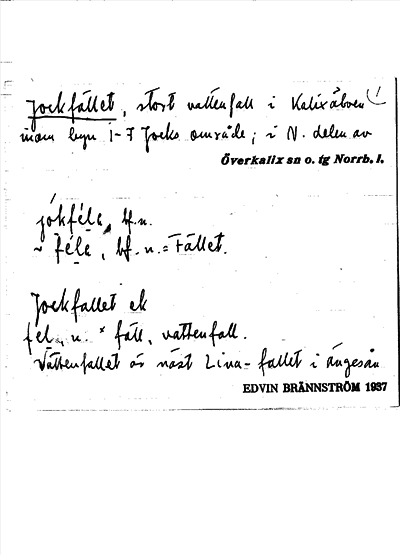 Jockfället, stort vattenfall i Kalixälven 1
inom byn i-7 Jocks område; i N. delen av
Överkalix sn o. tg Norrb. l.
jókfélę, bf. n.
~ félę, bf. n. = Fället.
Jockfallet ek
fel n. × fäll, vattenfall.
Vattenfallet är näst Lina-fallet i Ängesån
EDVIN BRÄNNSTRÖM 1937